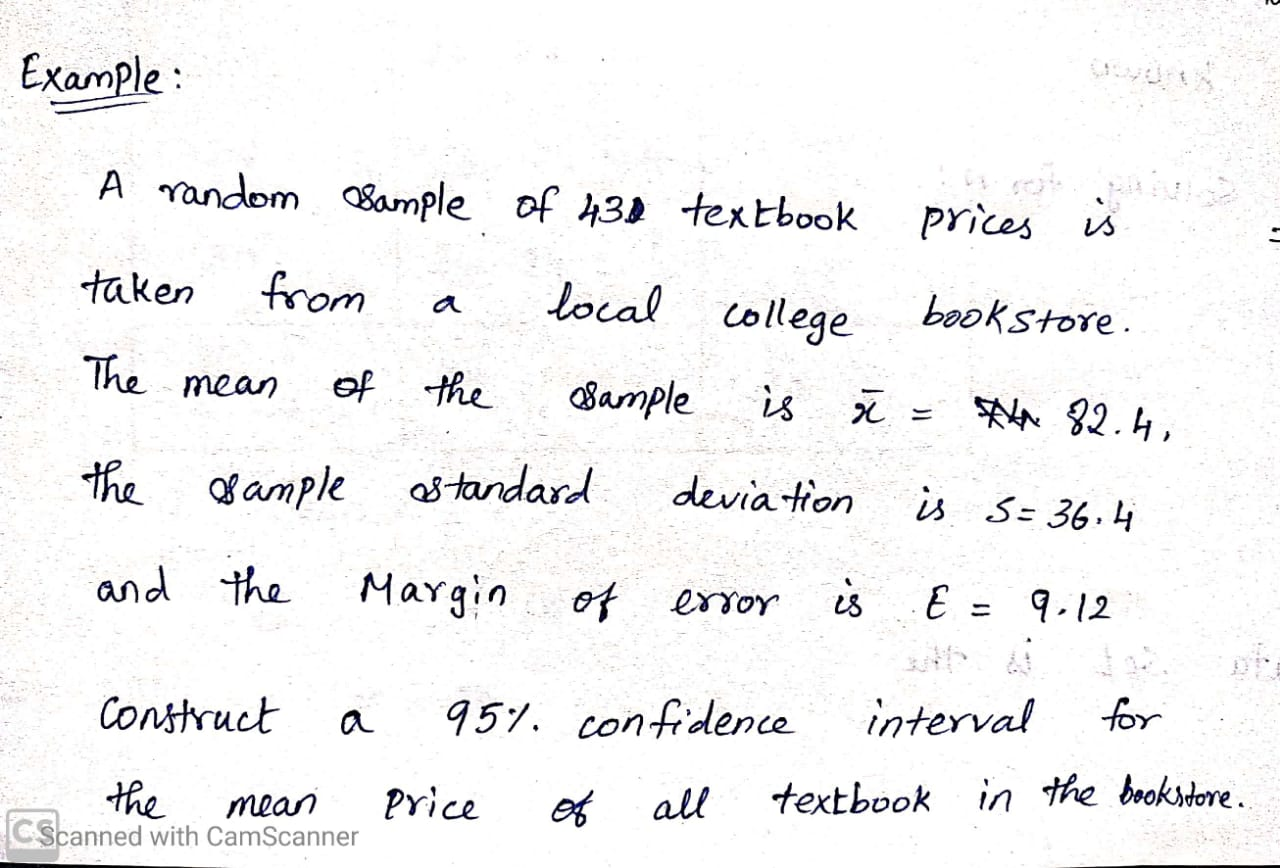 Example:
A random sample of textbook prices is
taken from a local college bookstore.
The mean of the sample is x̄ = 82.4,
the sample standard deviation is S = 36.4
and the Margin of error is E = 9.12
Construct a 95% confidence interval for
the mean price of all textbook in the bookstore.
CS Scanned with CamScanner